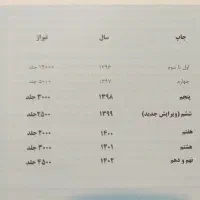 چاپ سال تیراژ
اول تا سوم ۱۳۹۶ ۱۳۰۰۰ جلد
چهارم ۱۳۹۷ ۵۰۰۰ جلد
پنجم ۱۳۹۸ ۳۰۰۰ جلد
ششم (ویرایش جدید) ۱۳۹۹ ۲۵۰۰ جلد
هفتم ۱۴۰۰ ۲۰۰۰ جلد
هشتم ۱۴۰۱ ۳۰۰۰ جلد
نهم و دهم ۱۴۰۲ ۴۵۰۰ جلد